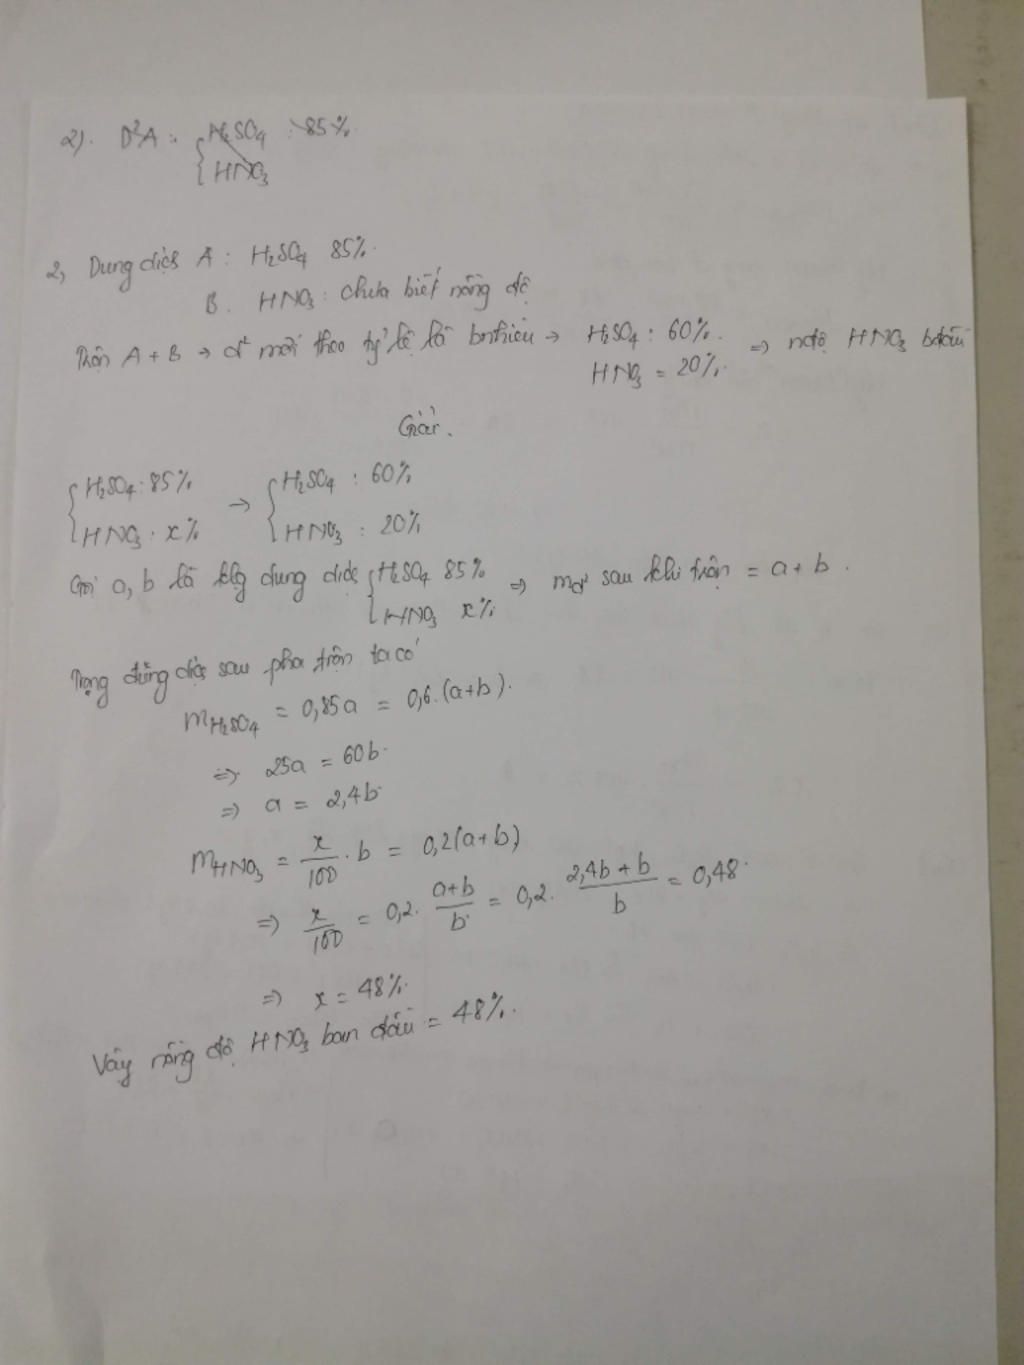 2). D²A : { H₂SO₄ : 85%
{ HNO₃
2, Dung dịch A : H₂SO₄ 85%.
B. HNO₃ : chưa biết nồng độ
Trộn A + B → d² mới theo tỷ lệ là bnhiêu → H₂SO₄ : 60%. ⇒ nđộ HNO₃ bđầu
HNO₃ = 20%.
Giải.
{ H₂SO₄ : 85% → { H₂SO₄ : 60%
{ HNO₃ : x% { HNO₃ : 20%
Gọi a, b là klg dung dịch { H₂SO₄ 85% ⇒ m_d² sau khi trộn = a + b.
{ HNO₃ x%
Trong dung dịch sau pha trộn ta có
m_H₂SO₄ = 0,85a = 0,6.(a+b).
⇒ 25a = 60b.
⇒ a = 2,4b
m_HNO₃ = x/100 . b = 0,2(a+b)
⇒ x/100 = 0,2. (a+b)/b = 0,2. (2,4b + b)/b = 0,48.
⇒ x = 48%.
Vậy nồng độ HNO₃ ban đầu = 48%.